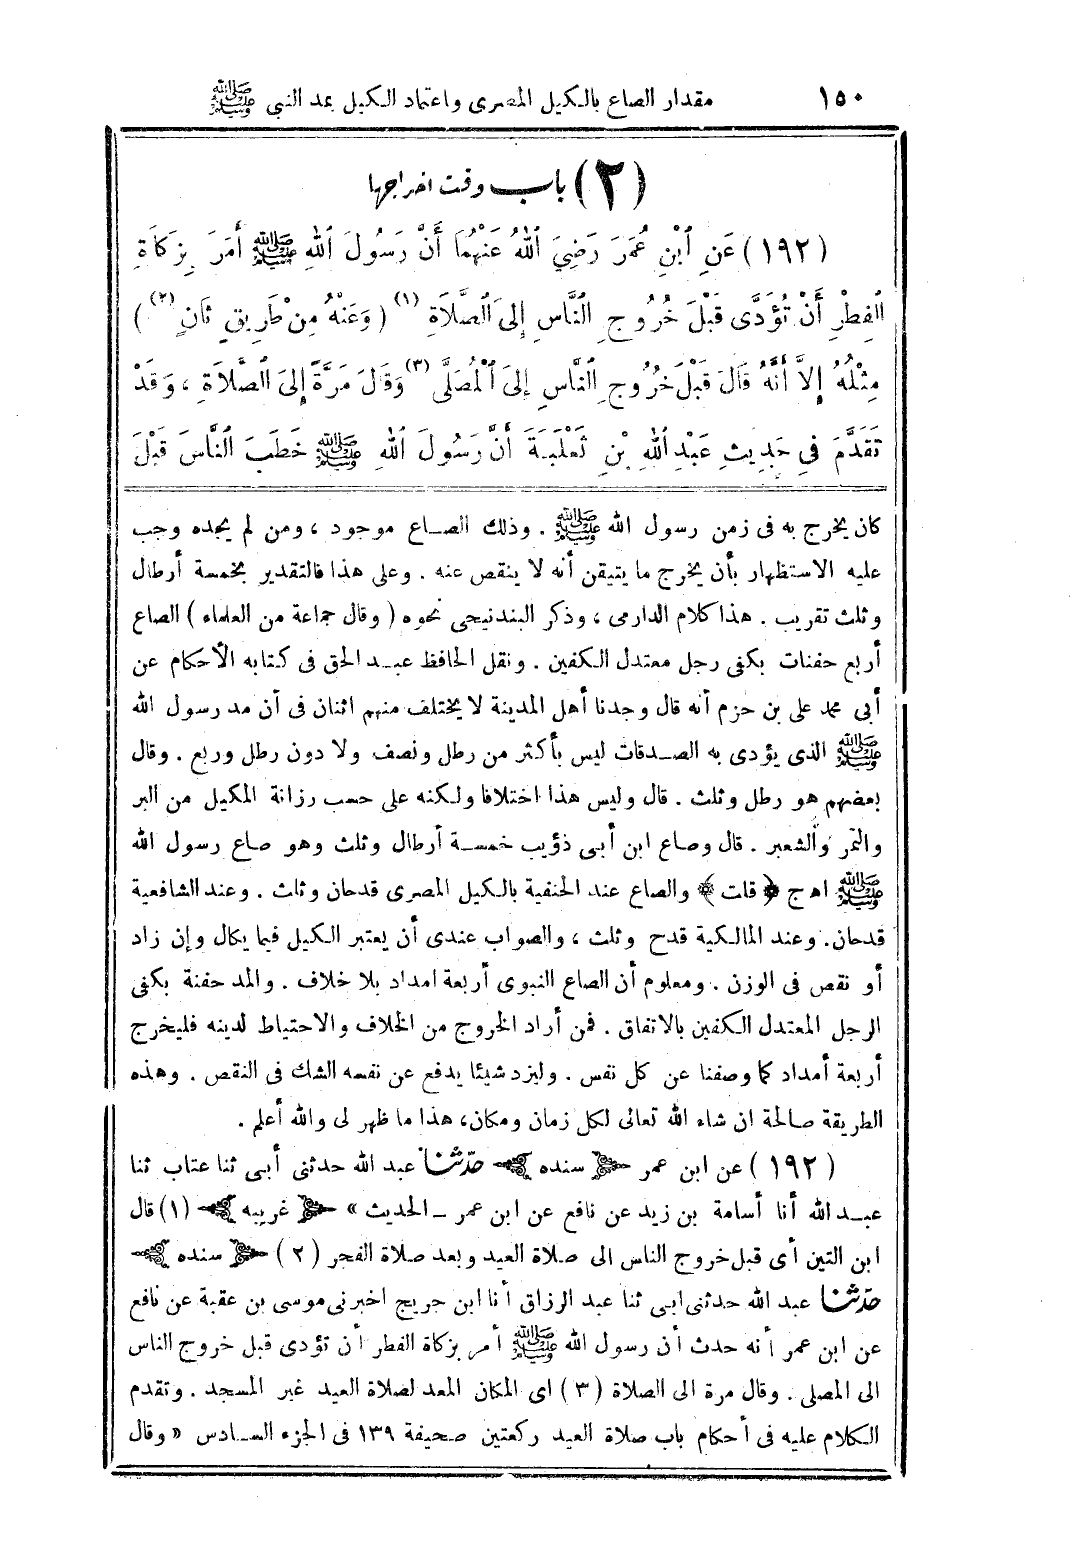 ١٥٠ مقدار الصاع بالكيل المصرى واعتماد الكيل بمد النبى ﷺ
(٢) باب وقت اخراجها
(١٩٢) عَنِ ٱبْنِ عُمَرَ رَضِيَ ٱللهُ عَنْهُمَا أَنَّ رَسُولَ ٱللهِ ﷺ أَمَرَ بِزَكَاةِ
ٱلْفِطْرِ أَنْ تُؤَدَّى قَبْلَ خُرُوجِ ٱلنَّاسِ إِلَى ٱلصَّلَاةِ (١) (وَعَنْهُ مِنْ طَرِيقٍ ثَانٍ (٢))
مِثْلُهُ إِلاَّ أَنَّهُ قَالَ قَبْلَ خُرُوجِ ٱلنَّاسِ إِلَى ٱلْمُصَلَّى (٣) وَقَالَ مَرَّةً إِلَى ٱلصَّلَاةِ ، وَقَدْ
تَقَدَّمَ فِي حَدِيثِ عَبْدِ ٱللهِ بْنِ ثَعْلَبَةَ أَنَّ رَسُولَ ٱللهِ ﷺ خَطَبَ ٱلنَّاسَ قَبْلَ
كان يخرج به فى زمن رسول الله ﷺ . وذلك الصـاع موجود ، ومن لم يجده وجب
عليه الاستظهار بأن يخرج ما يتيقن أنه لا ينقص عنه . وعلى هذا فالتقدير بخمسة أرطال
وثلث تقريب . هذا كلام الدارمى ، وذكر البندنيجى نحوه (وقال جماعة من العلماء) الصاع
أربع حفنات بكفى رجل معتدل الكفين . ونقل الحافظ عبـد الحق فى كتابه الأحكام عن
أبى محمد على بن حزم أنه قال وجدنا أهل المدينة لا يختلف منهم اثنان فى أن مد رسول الله
ﷺ الذى يؤدى به الصـدقات ليس بأكثر من رطل ونصف ولا دون رطل وربع . وقال
بعضهم هو رطل وثلث . قال وليس هذا اختلافا ولكنه على حسب رزانة المكيل من البر
والتمر والشعير . قال وصاع ابن أبى ذؤيب خمسـة أرطال وثلث وهو صاع رسول الله
ﷺ اهـ ج ﴿ قلت ﴾ والصاع عند الحنفية بالكيل المصرى قدحان وثلث . وعند الشافعية
قدحان. وعند المالكية قدح وثلث ، والصواب عندى أن يعتبر الكيل فيما يكال وإن زاد
أو نقص فى الوزن . ومعلوم أن الصاع النبوى أربعة امداد بلا خلاف . والمد حفنة بكفى
الرجل المعتدل الكفين بالاتفاق . فمن أراد الخروج من الخلاف والاحتياط لدينه فليخرج
أربعة أمداد كما وصفنا عن كل نفس . وليزد شيئا يدفع عن نفسه الشك فى النقص . وهذه
الطريقة صالحة ان شاء الله تعالى لكل زمان ومكان، هذا ما ظهر لى والله أعلم .
(١٩٢) عن ابن عمر ﴿ سنده ﴾ حدّثنا عبد الله حدثنى أبى ثنا عتاب ثنا
عبـد الله أنا أسامة بن زيد عن نافع عن ابن عمر ـ الحديث » ﴿ غريبه ﴾ (١) قال
ابن التين أى قبل خروج الناس الى صلاة العيد وبعد صلاة الفجر (٢) ﴿ سنده ﴾
حدّثنا عبد الله حدثنى ابى ثنا عبد الرزاق أنا ابن جريج اخبرنى موسى بن عقبة عن نافع
عن ابن عمر أنه حدث أن رسول الله ﷺ أمر بزكاة الفطر أن تؤدى قبل خروج الناس
الى المصلى . وقال مرة الى الصلاة (٣) اى المكان المعد لصلاة العيد غير المسجد . وتقدم
الكلام عليه فى أحكام باب صلاة العيد ركعتين صحيفة ١٣٩ فى الجزء السـادس «وقال